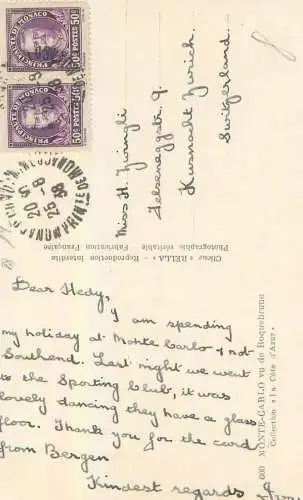 PRINCIPAUTÉ DE MONACO
50c POSTES 50c
PRINCIPAUTÉ DE MONACO
50c POSTES 50c
20 15
25-8
38
PRINCIPAUTE DE MONACO
Miss H. Zwingli
9.
Kusnacht Zurich.
Switzerland.
Cliché « RELLA » - Reproduction Interdite
Photographie véritable - Fabrication Française
Dear Hedy,
I am spending
my holiday at Monte Carlo & not
Southend. Last night we went
to the Sporting Club, it was
lovely dancing they have a glass
floor. Thank you for the card
from Bergen
Kindest regards
600 MONTE-CARLO vu de Roquebrune
Collection « La Côte d'Azur »